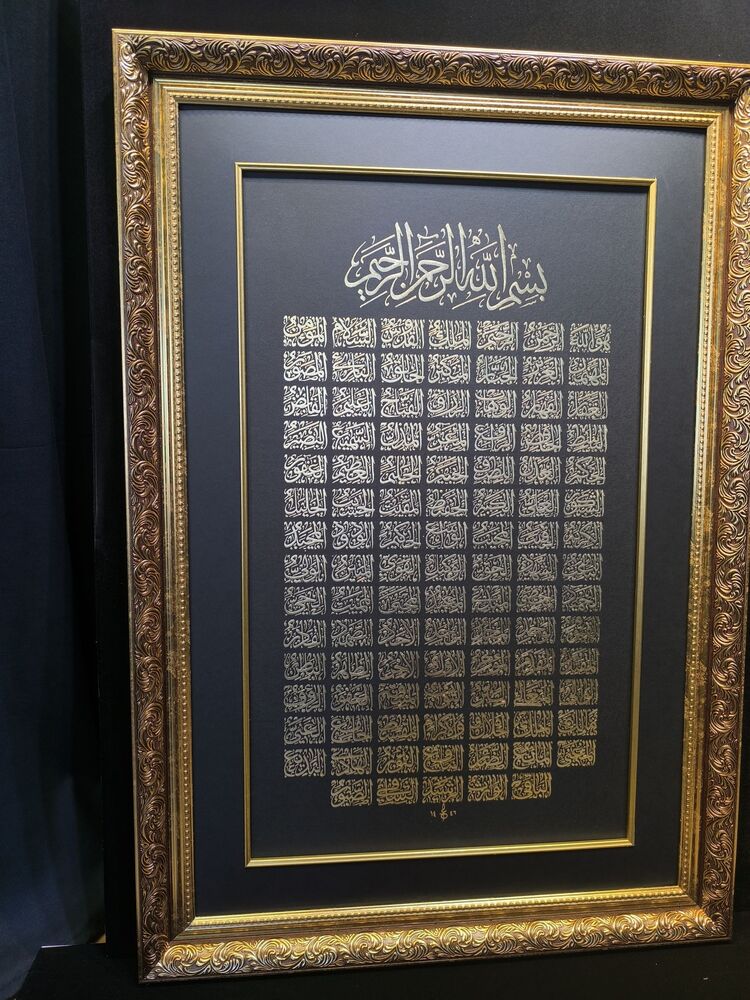 بِسْمِ اللهِ الرَّحْمٰنِ الرَّحِيمِ
هو الله الرحمن الرحيم الملك القدوس السلام المؤمن
المهيمن العزيز الجبار المتكبر الخالق البارئ المصور
الغفار القهار الوهاب الرزاق الفتاح العليم القابض
الباسط الخافض الرافع المعز المذل السميع البصير
الحكم العدل اللطيف الخبير الحليم العظيم الغفور
الشكور العلي الكبير الحفيظ المقيت الحسيب الجليل
الكريم الرقيب المجيب الواسع الحكيم الودود المجيد
الباعث الشهيد الحق الوكيل القوي المتين الولي
الحميد المحصي المبدئ المعيد المحيي المميت الحي
القيوم الواجد الماجد الواحد الأحد الصمد القادر
المقتدر المقدم المؤخر الأول الآخر الظاهر الباطن
الوالي المتعالي البر التواب المنتقم العفو الرؤوف
مالك الملك ذو الجلال والإكرام المقسط الجامع الغني
المغني المانع الضار النافع النور الهادي البديع
الباقي الوارث الرشيد الصبور